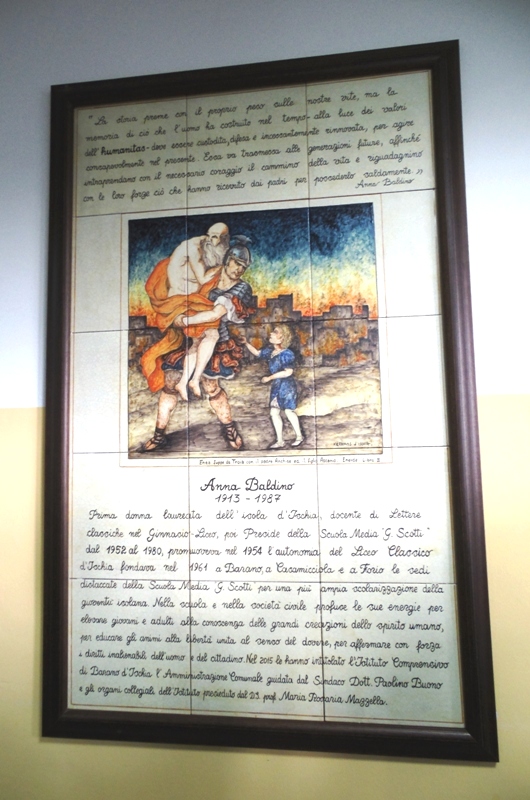 "La storia preme con il proprio peso sulle nostre vite, ma la
memoria di ciò che l'uomo ha costruito nel tempo alla luce dei valori
dell'humanitas deve essere custodita, difesa e incessantemente rinnovata, per agire
consapevolmente nel presente. Essa va trasmessa alle generazioni future, affinché
intraprendano con il necessario coraggio il cammino della vita e riguadagnino
con le loro forze ciò che hanno ricevuto dai padri per possederlo saldamente."
Anna Baldino
Enea fugge da Troia con il padre Anchise ed il figlio Ascanio. Eneide - Libro II
Anna Baldino
1913 - 1987
Prima donna laureata dell'isola d'Ischia, docente di Lettere
classiche nel Ginnasio-Liceo, poi Preside della Scuola Media "G. Scotti"
dal 1952 al 1980, promuoveva nel 1954 l'autonomia del Liceo Classico
d'Ischia fondava nel 1961 a Barano, a Casamicciola e a Forio le sedi
distaccate della Scuola Media "G. Scotti" per una più ampia scolarizzazione della
gioventù isolana. Nella scuola e nella società civile profuse le sue energie per
elevare giovani e adulti alla conoscenza delle grandi creazioni dello spirito umano,
per educare gli animi alla libertà unita al senso del dovere, per affermare con forza
i diritti inalienabili dell'uomo e del cittadino. Nel 2015 le hanno intitolato l'Istituto Comprensivo
di Barano d'Ischia l'Amministrazione Comunale guidata dal Sindaco Dott. Paolino Buono
e gli organi collegiali dell'Istituto presieduto dal D.S. prof. Maria Rosaria Mazzella.